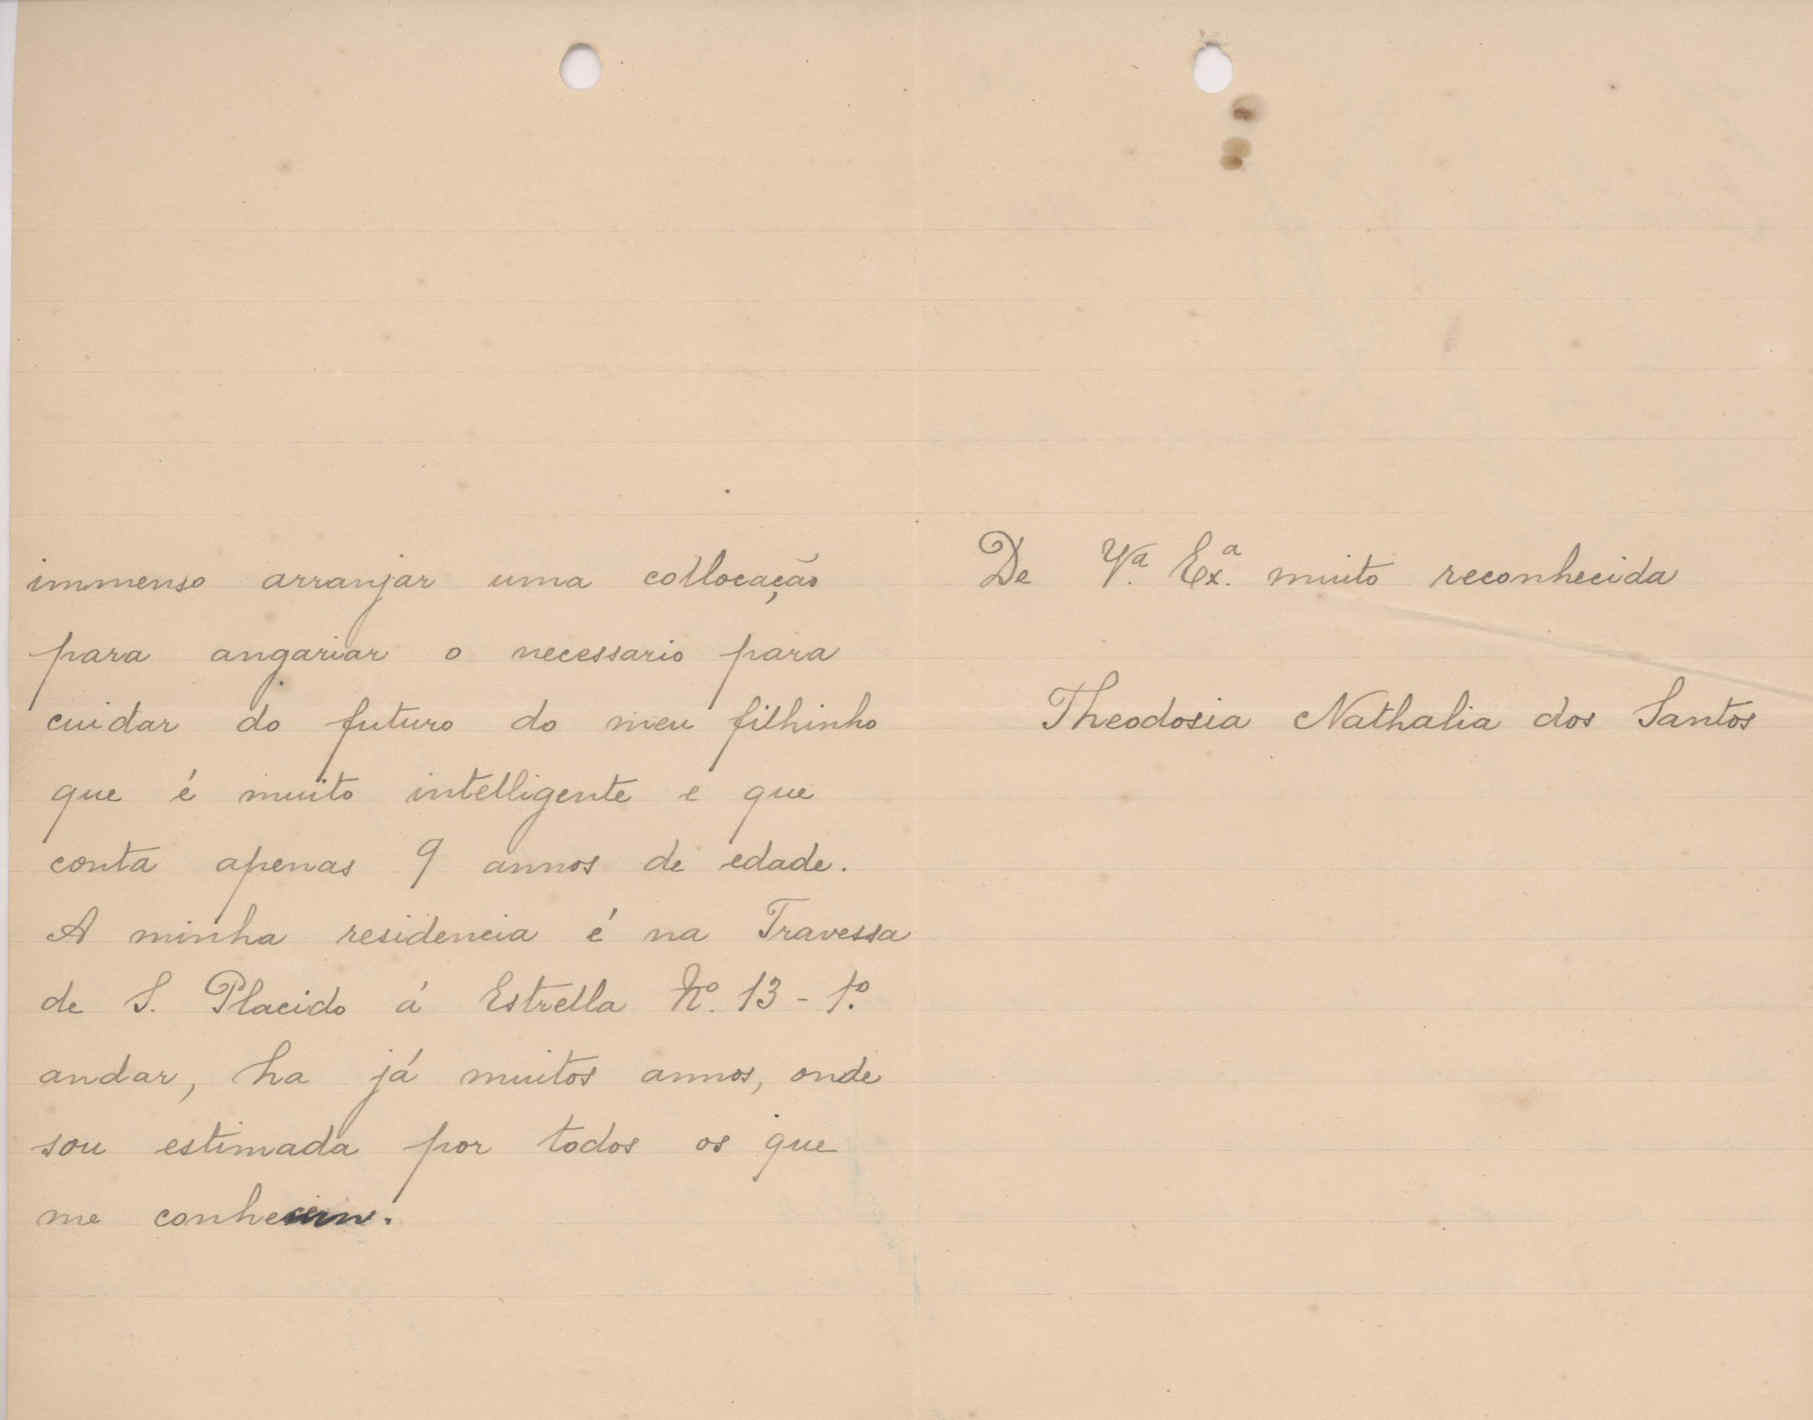 immenso arranjar uma collocação
para angariar o necessario para
cuidar do futuro do meu filhinho
que é muito intelligente e que
conta apenas 9 annos de edade.
A minha residencia é na Travessa
de S. Placido á Estrella Nº. 13 - 1º.
andar, ha já muitos annos, onde
sou estimada por todos os que
me conhecem.
De V.ª Ex.ª muito reconhecida
Theodosia Nathalia dos Santos